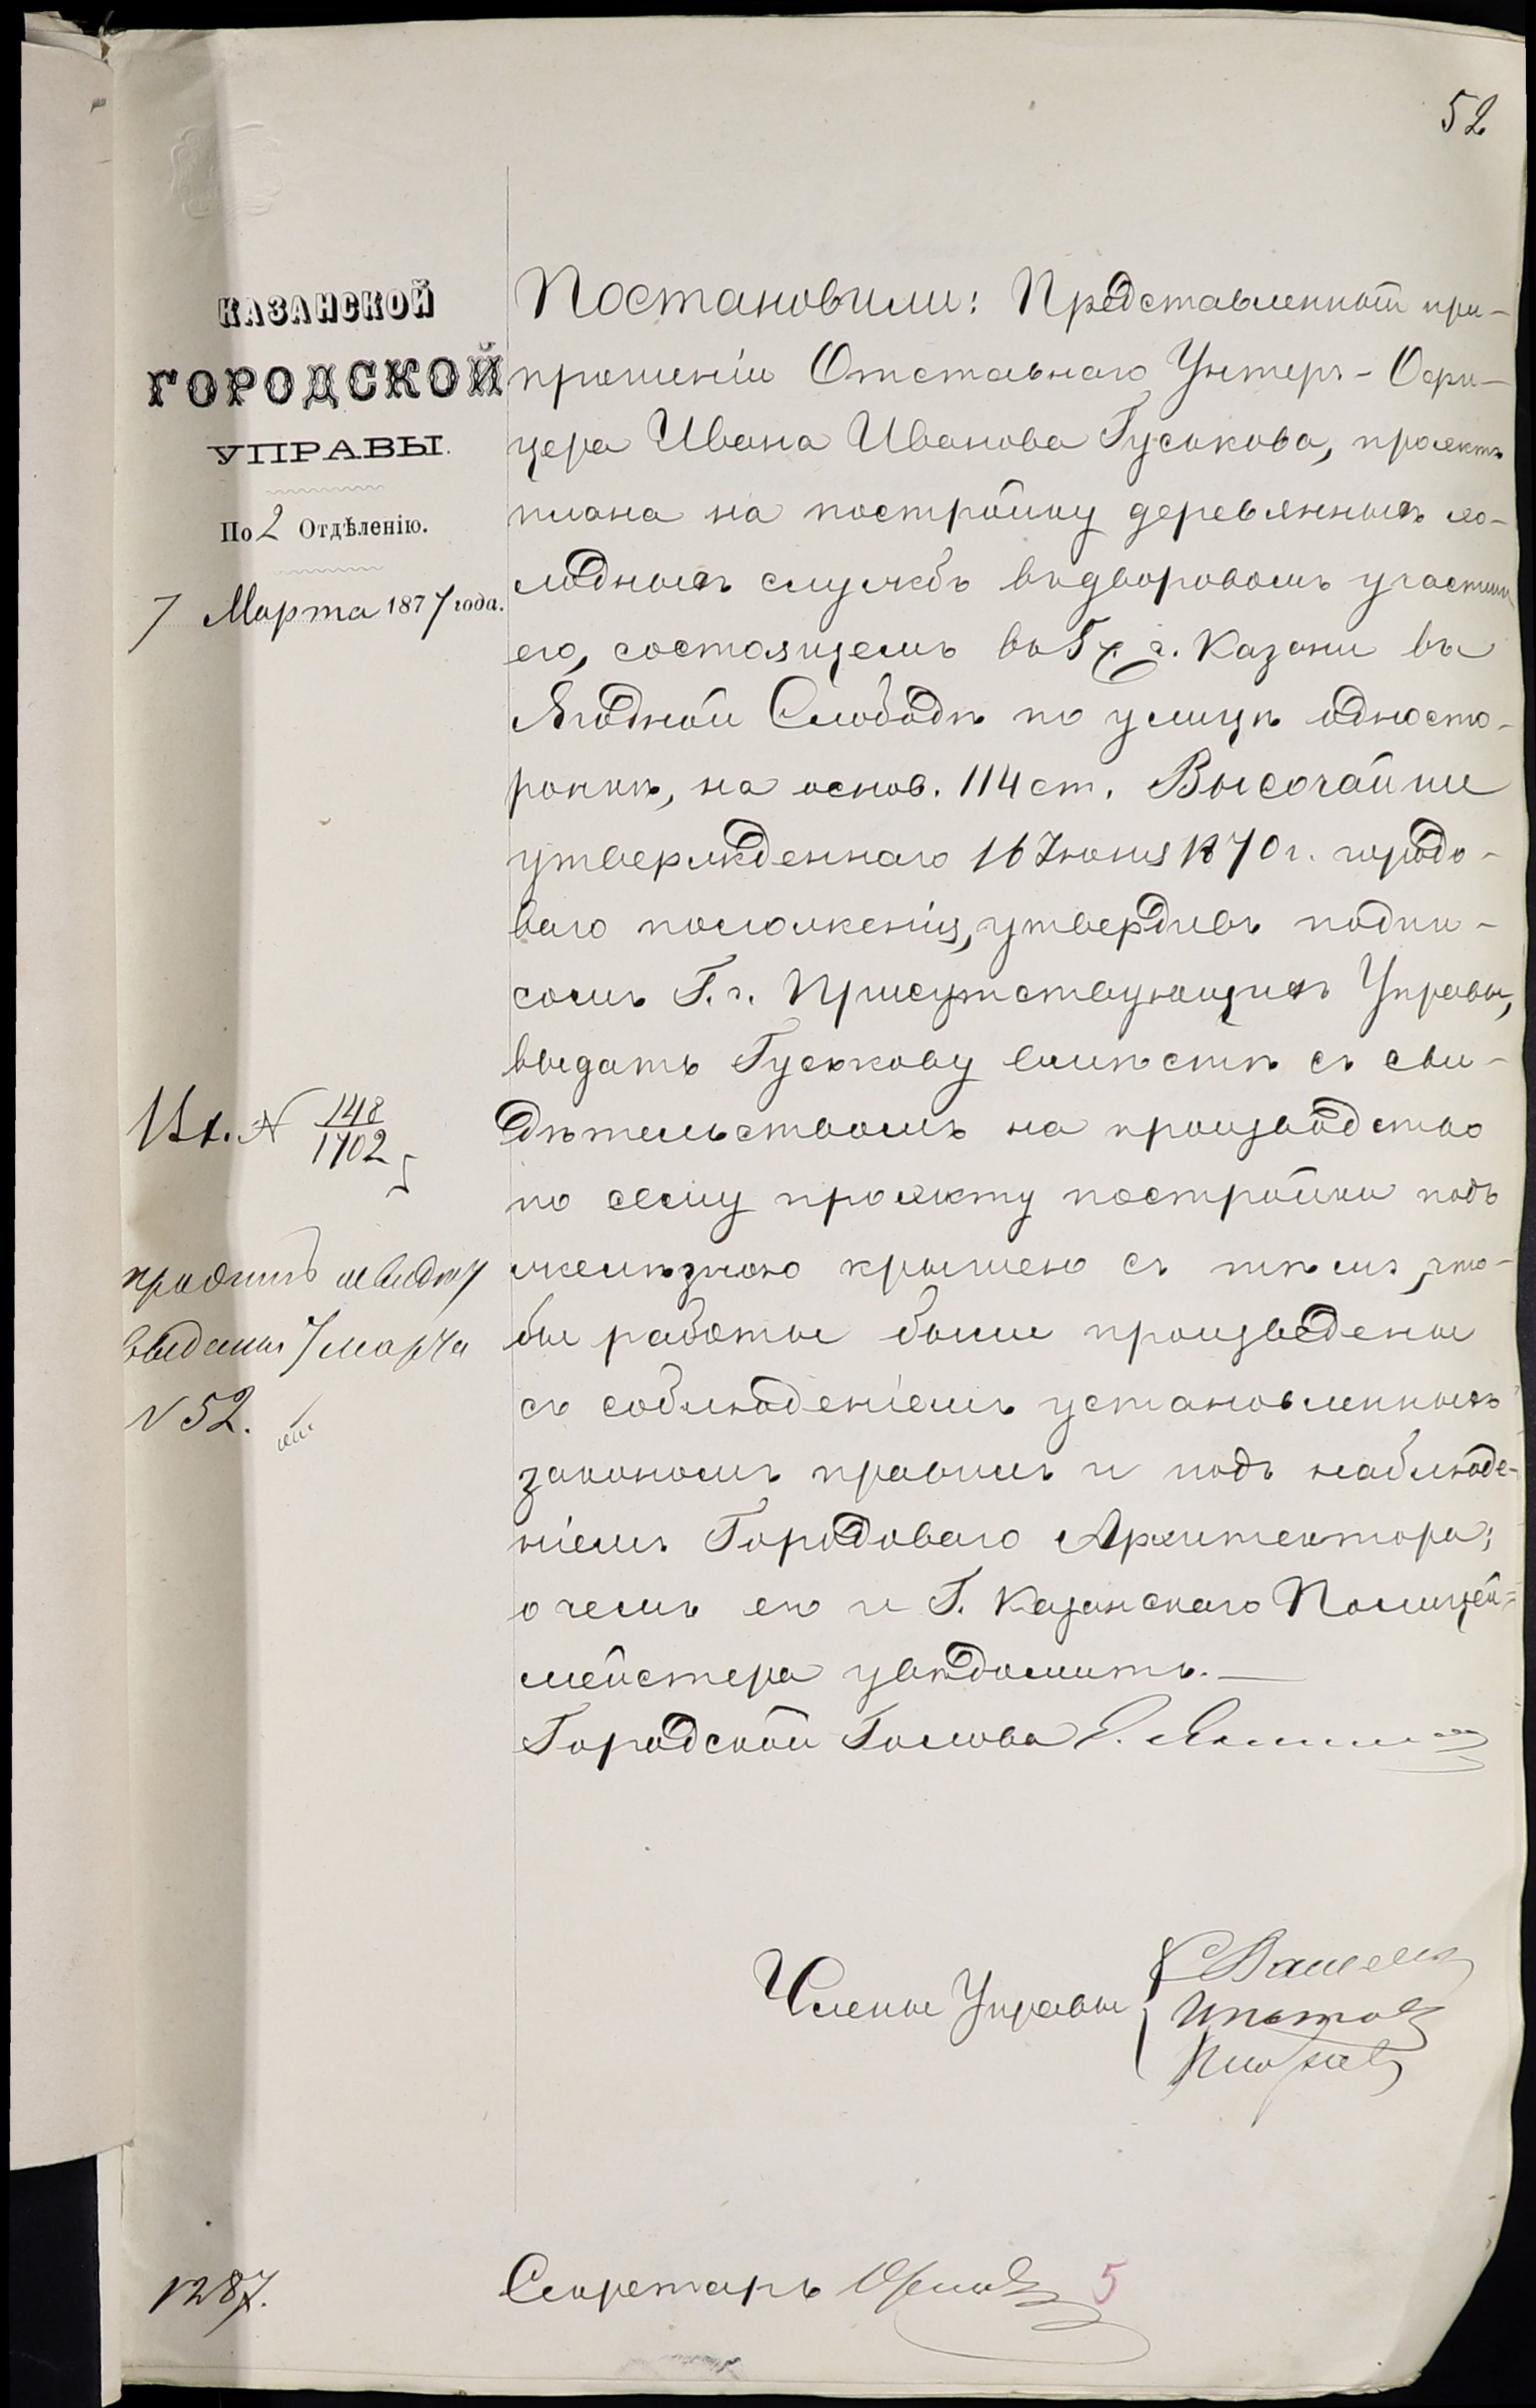 52
КАЗАНСКОЙ
ГОРОДСКОЙ
УПРАВЫ.
По 2 Отдѣленію.
7 Марта 1877 года.
Постановили: Представленной при-
прошеніи Отставнаго Унтеръ-Офи-
цера Ивана Иванова Гуськова, проектъ
плана на постройку деревянныхъ хо-
лодныхъ службъ въ дворовомъ участкѣ
его, состоящемъ въ 5 ч. г. Казани въ
Ягодной Слободѣ по улицѣ односто-
ронкѣ, на основ. 114 ст. Высочайше
утвержденнаго 16 Іюня 1870 г. городо-
ваго положенія, утвердивъ подпи-
сомъ Г.г. Присутствующихъ Управы,
выдать Гуськову вмѣстѣ съ сви-
дѣтельствомъ на производство
по сему проекту постройки подъ
желѣзною крышею съ тѣмъ, что-
бы работы были произведены
съ соблюденіемъ установленныхъ
закономъ правилъ и подъ наблюде-
ніемъ Городоваго Архитектора;
о чемъ его и Г. Казанскаго Полицей-
мейстера увѣдомить.—
Городской Голова
Вх. № 148/1702
выданы 7 марта
№ 52.
Члены Управы
Ипатов
Секретарь
5
№ 287.